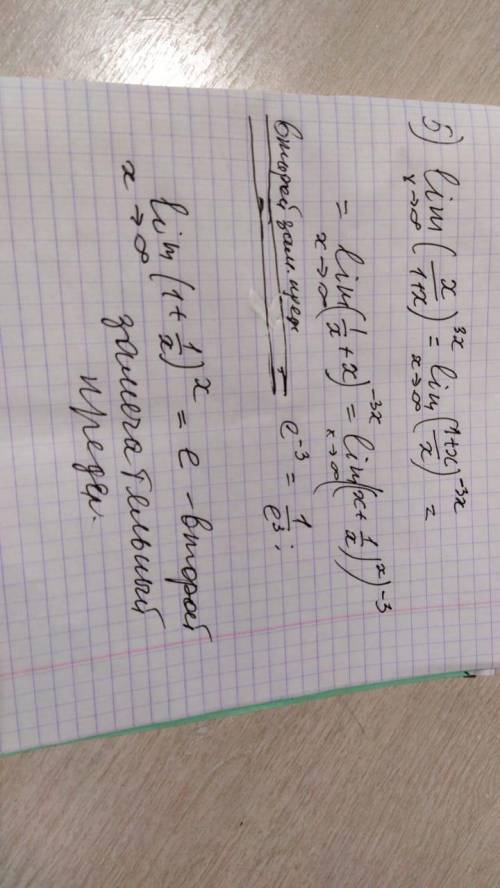 5) lim x→∞ (x/(1+x))^3x = lim x→∞ ((1+x)/x)^-3x =
= lim x→∞ (1/x + x)^-3x = lim x→∞ ((x + 1/x)^x)^-3
второй зам. пред = e^-3 = 1/e^3;
lim x→∞ (1 + 1/x)^x = e - второй
замечательный
предел.